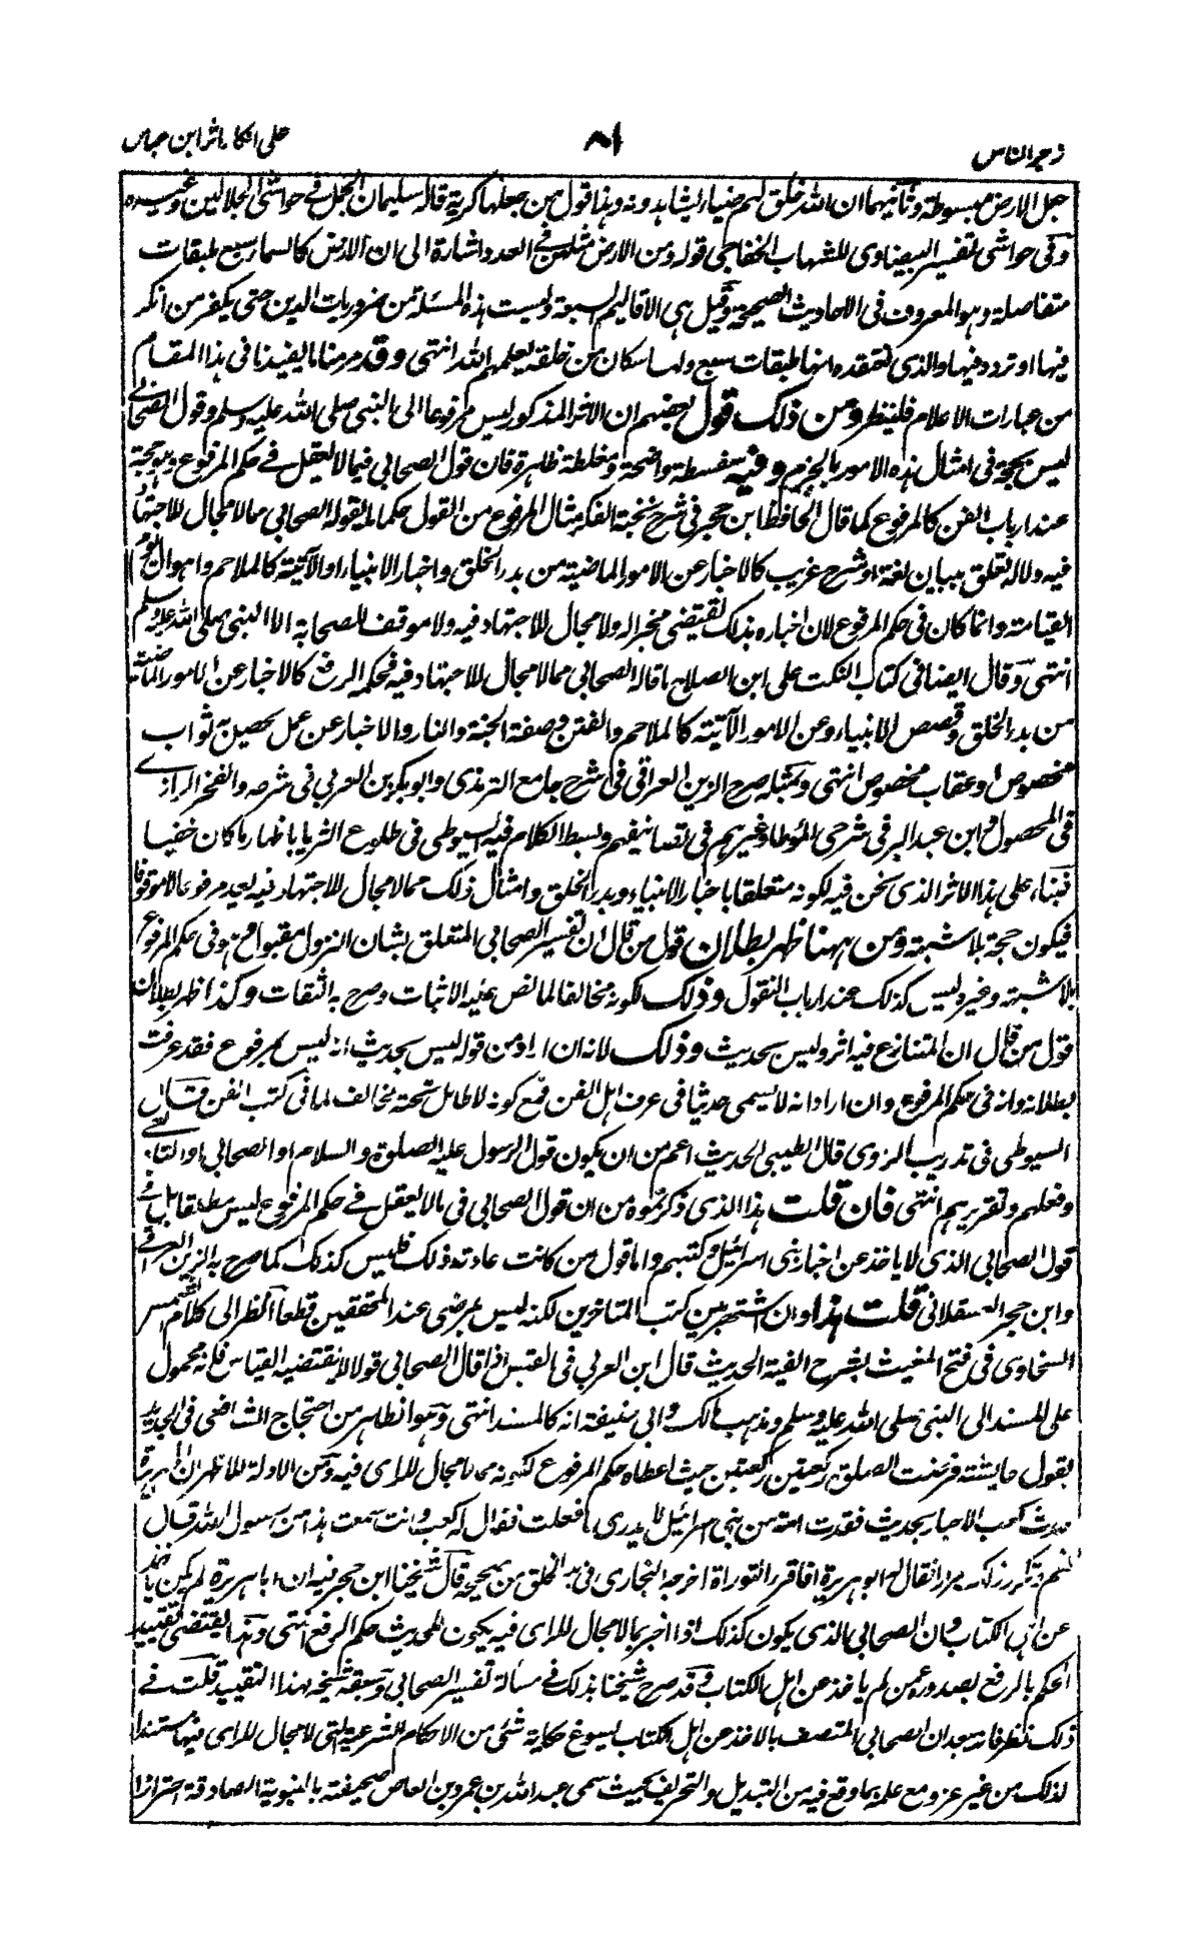 زجر الناس
٨١
على انكار اثر ابن عباس
جعل الارض مبسوطة وثانيهما ان الله خلق لهم ضياء يشاهدونه وهذا قول من جعلها كرية قاله سليمان الجمل في حواشى الجلالين وغيره
وفى حواشى تفسير البيضاوى للشهاب الخفاجى قوله ومن الارض مثلهن في العدد اشارة الى ان الارض كالسماء سبع طبقات
متفاصلة وهو المعروف فى الاحاديث الصحيحة وقيل هى الاقاليم السبعة وليست هذه المسئلة من ضروريات الدين حتى يكفر من انكر
فيها او تردد فيها والذى نعتقده انها طبقات سبع ولها سكان من خلقه يعلمهم الله انتهى وقد مر منا ما يفيدنا فى هذا المقام
من عبارات الاعلام فلينظر ومن ذلك قول بعضهم ان الاثر المذكور ليس مرفوعا الى النبى صلى الله عليه وسلم وقول الصحابي
ليس بحجة فى امثال هذه الامور بالجزم وفيه سفسطة واضحة ومغلطة ظاهرة فان قول الصحابي فيما لا يعقل في حكم المرفوع وهو حجة
عند ارباب الفن كالمرفوع كما قال الحافظ ابن حجر فى شرح نخبة الفكر مثال المرفوع من القول حكما ما يقوله الصحابي مما لا مجال للاجتهاد
فيه ولا له تعلق ببيان لغة او شرح غريب كالاخبار عن الامور الماضية من بدء الخلق واخبار الانبياء او الآتية كالملاحم واهوال يوم
القيامة وانما كان فى حكم المرفوع لان اخباره بذلك يقتضى مخبرا له ولا مجال للاجتهاد فيه ولا موقف للصحابة الا النبى صلى الله عليه وسلم
انتهى وقال ايضا فى كتاب النكت على ابن الصلاح ما قاله الصحابي مما لا مجال للاجتهاد فيه فحكمه الرفع كالاخبار عن الامور الماضية
من بدء الخلق وقصص الانبياء وعن الامور الآتية كالملاحم والفتن وصفة الجنة والنار والاخبار عن عمل يحصل به ثواب
مخصوص او عقاب مخصوص انتهى وبمثله صرح الزين العراقى فى شرح جامع الترمذى وابو بكر بن العربي فى شرحه والفخر الرازے
فى المحصول وابن عبد البر فى شرحى المؤطا وغيرهم فى تصانيفهم وبسط الكلام فيه السيوطى فى طلوع الثريا باظهار ما كان خفيا
فبناء على هذا الاثر الذى نحن فيه لكونه متعلقا باخبار الانبياء وبدء الخلق وامثال ذلك مما لا مجال للاجتهاد فيه يعد مرفوعا لا موقوفا
فيكون حجة بلا شبهة ومن ههنا ظهر بطلان قول من قال ان تفسير الصحابي المتعلق بشان النزول مقبول وهو فى حكم المرفوع
بلا شبهة وغيره ليس كذلك عند ارباب النقول وذلك لكونه مخالفا لما نص عليه الاثبات وصرح به الثقات وكذا ظهر بطلان
قول من قال ان المتنازع فيه اثر وليس بحديث وذلك لانه ان اراد من قوله ليس بحديث انه ليس بمرفوع فقد عرفت
بطلانه وانه فى حكم المرفوع وان اراد انه لا يسمى حديثا فى عرف اهل الفن فمع كونه لا طائل تحته مخالف لما فى كتب الفن فقال
السيوطى فى تدريب الراوى قال الطيبى الحديث اعم من ان يكون قول الرسول عليه الصلوة والسلام او الصحابي او التابعے
وفعلهم وتقريرهم انتهى فان قلت هذا الذى ذكرتموه من ان قول الصحابي فى ما لا يعقل في حكم المرفوع ليس مطلقا بل في
قول الصحابي الذى لا ياخذ عن اخبار بنى اسرائيل وكتبهم واما قول من كانت عادته ذلك فليس كذلك كما صرح به الزين العراقے
وابن حجر العسقلانى قلت هذا وان اشتهر بين كتب المتاخرين لكنه ليس بمرضى عند المحققين قطعا انظر الى كلام الشمس
السخاوى فى فتح المغيث بشرح الفية الحديث قال ابن العربي فى القبس اذا قال الصحابي قولا لا يقتضيه القياس فانه محمول
على المسند الى النبى صلى الله عليه وسلم ومذهب مالك وابى حنيفة انه كالمسند انتهى وهو الظاهر من احتجاج الشافعى فى الجديد
بقول عايشة فرضت الصلوة ركعتين ركعتين حيث اعطاه حكم المرفوع لكونه مما لا مجال للراى فيه ومن الادلة للاظهر ان ابا هريرة
حدث كعب الاحبار بحديث فقدت امة من بنى اسرائيل لا يدرى ما فعلت فقال له كعب وانت سمعت هذا من رسول الله فقال
نعم وتكرر ذلك مرارا فقال له ابو هريرة افاقرء التوراة اخرجه البخارى فى بدء الخلق من صحيحه قال شيخنا ابن حجر فيه ان ابا هريرة لم يكن ياخذ
عن اهل الكتاب وان الصحابي الذى يكون كذلك اذا اخبر بما لا مجال للراى فيه يكون للحديث حكم الرفع انتهى وهذا يقتضى تقييد
الحكم بالرفع بصدوره عمن لم ياخذ عن اهل الكتاب وقد صرح شيخنا بذلك في مسألة تفسير الصحابي وسبقه شيخه بهذا التقييد قلت في
ذلك نظر فانه يبعد ان الصحابي المتصف بالاخذ عن اهل الكتاب يسوغ حكاية شئ من الاحكام الشرعية التى لا مجال للراى فيها مستندا
لذلك من غير عزو مع علمه بما وقع فيه من التبديل والتحريف بحيث سمى عبد الله بن عمرو بن العاص صحيفته بالنبوية الصادقة احترازا